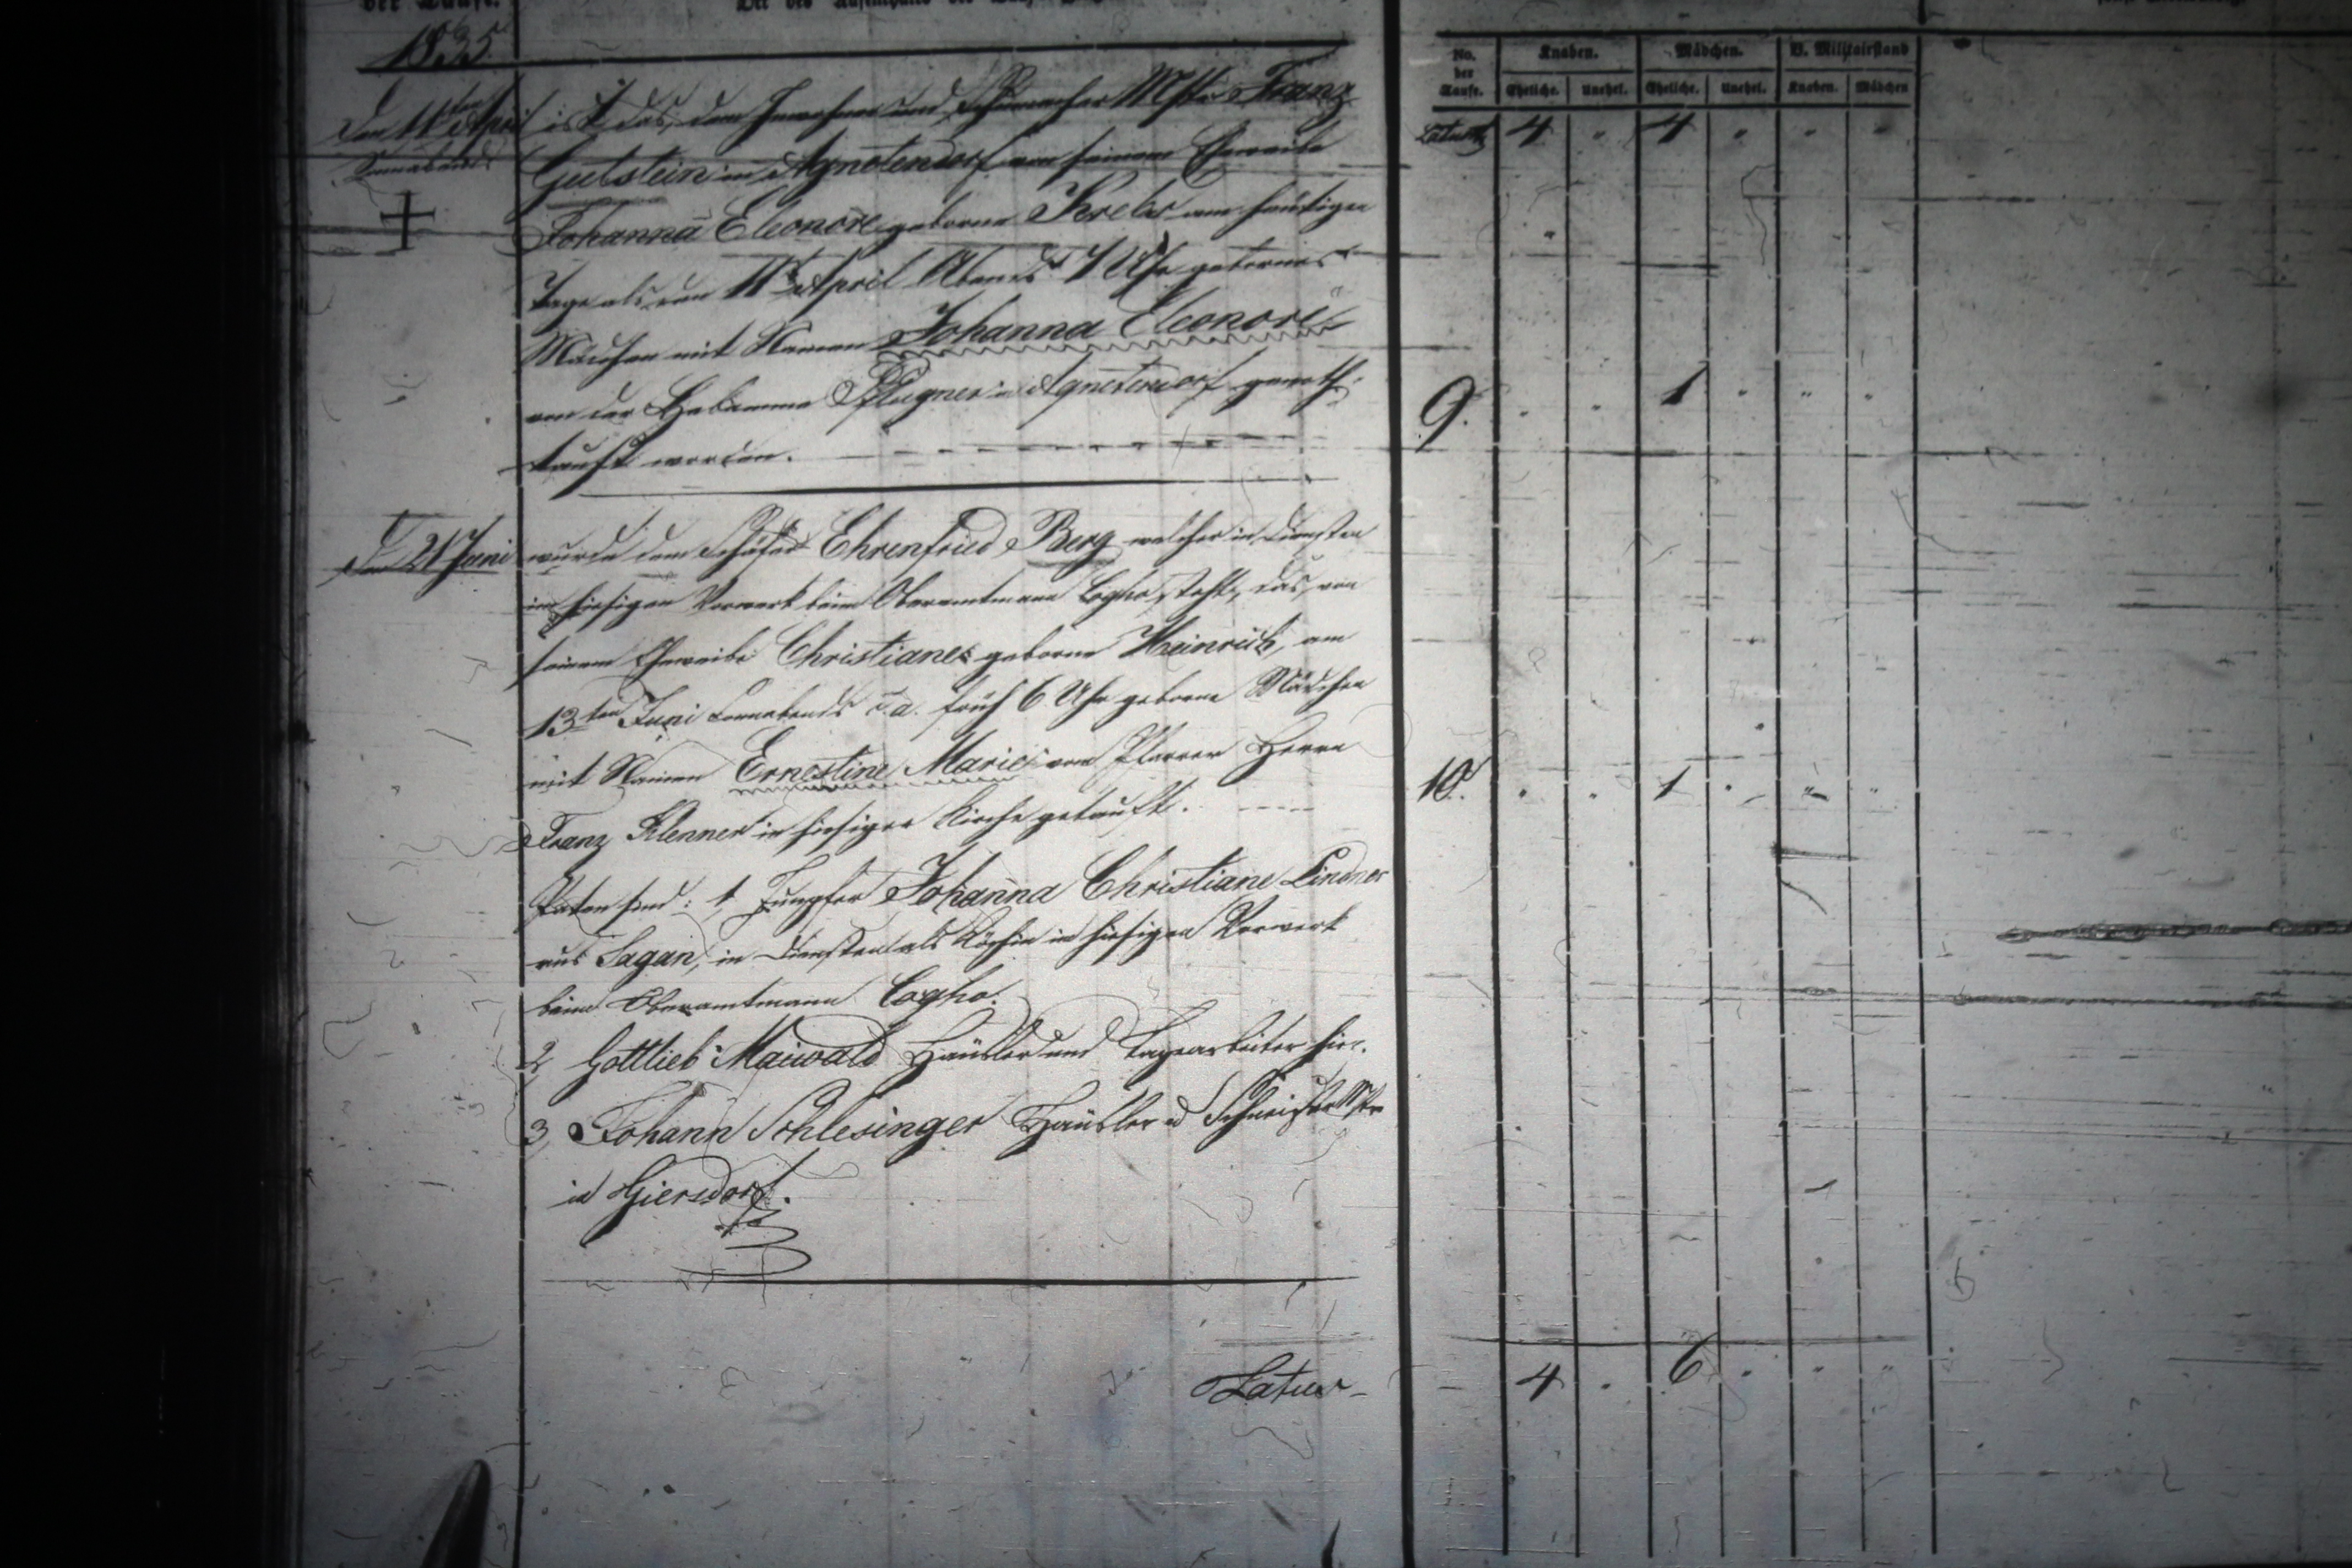 der Taufe.
1835.
No. der Taufe.
Knaben. Mädchen. V. Militairstand
Eheliche. Unehel. Eheliche. Unehel. Knaben. Mädchen
Latus 4 " 4 " " "
Den 11ten April
Sonnabends
ist das, dem Inwohner und Schumacher Mstr Franz
Gutstein in Agnetendorf von seinem Eheweibe
Johanna Eleonore geborne Krebs am heutigen
Tage als den 11ten April Abends Uhr gebornes
Mädchen mit Namen Johanna Eleonore
von der Hebamme Pflugner in Agnetendorf genoth-
tauft worden.
9. " " 1 " " "
D 21 Juni
wurde dem Schäfer Ehrenfried Berg welcher in Diensten
im hiesigen Vorwerk beim Oberamtmann Cogho steht, das, von
seinem Eheweibe Christiane geborne Heinrich, am
13ten Juni Sonnabends d. a. früh 6 Uhr geborne Mädchen
mit Namen Ernestine Marie von Pfarrer Herrn
Franz Klenner in hiesiger Kirche getauft.
10. " " 1 " " "
Paten sind: 1, Jungfer Johanna Christiane Lindner
aus Sagan, in Diensten als Köchin im hiesigen Vorwerk
beim Oberamtmann Cogho.
2, Gottlieb Maiwald Häusler und Tagearbeiter hier.
3, Johann Schlesinger Häusler u Schneider Mstr
in Giersdorf.
Latus 4 " 6 " " "